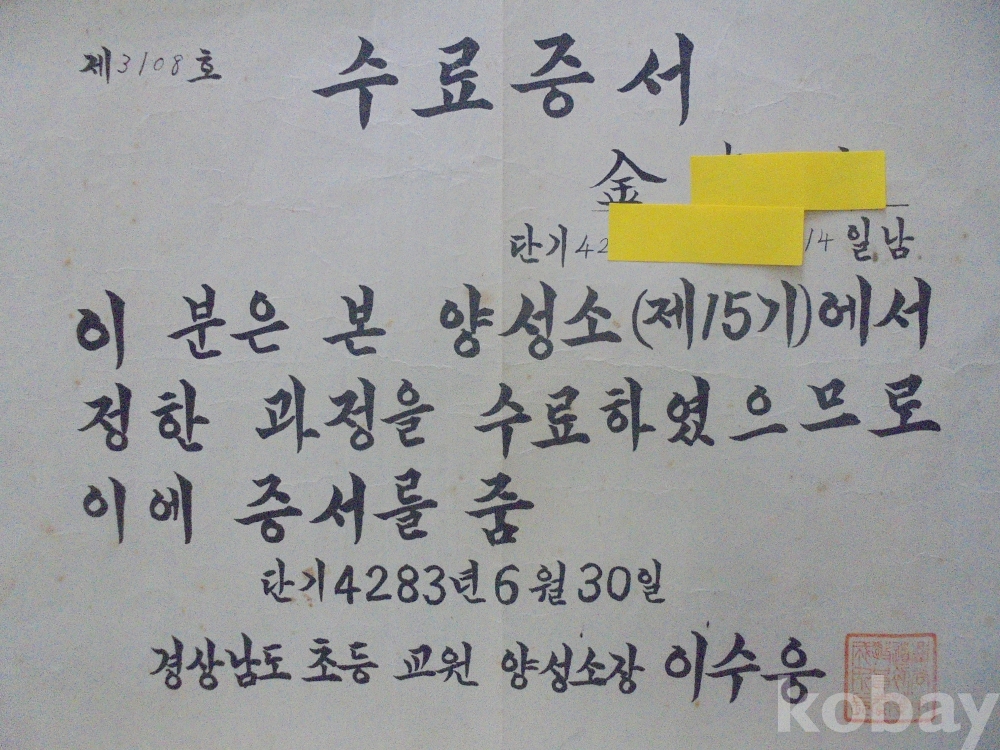 제3108호
수료증서
金
단기42 14일 남
이 분은 본 양성소(제15기)에서
정한 과정을 수료하였으므로
이에 증서를 줌
단기4283년6월30일
경상남도 초등 교원 양성소장 이수웅
kobay